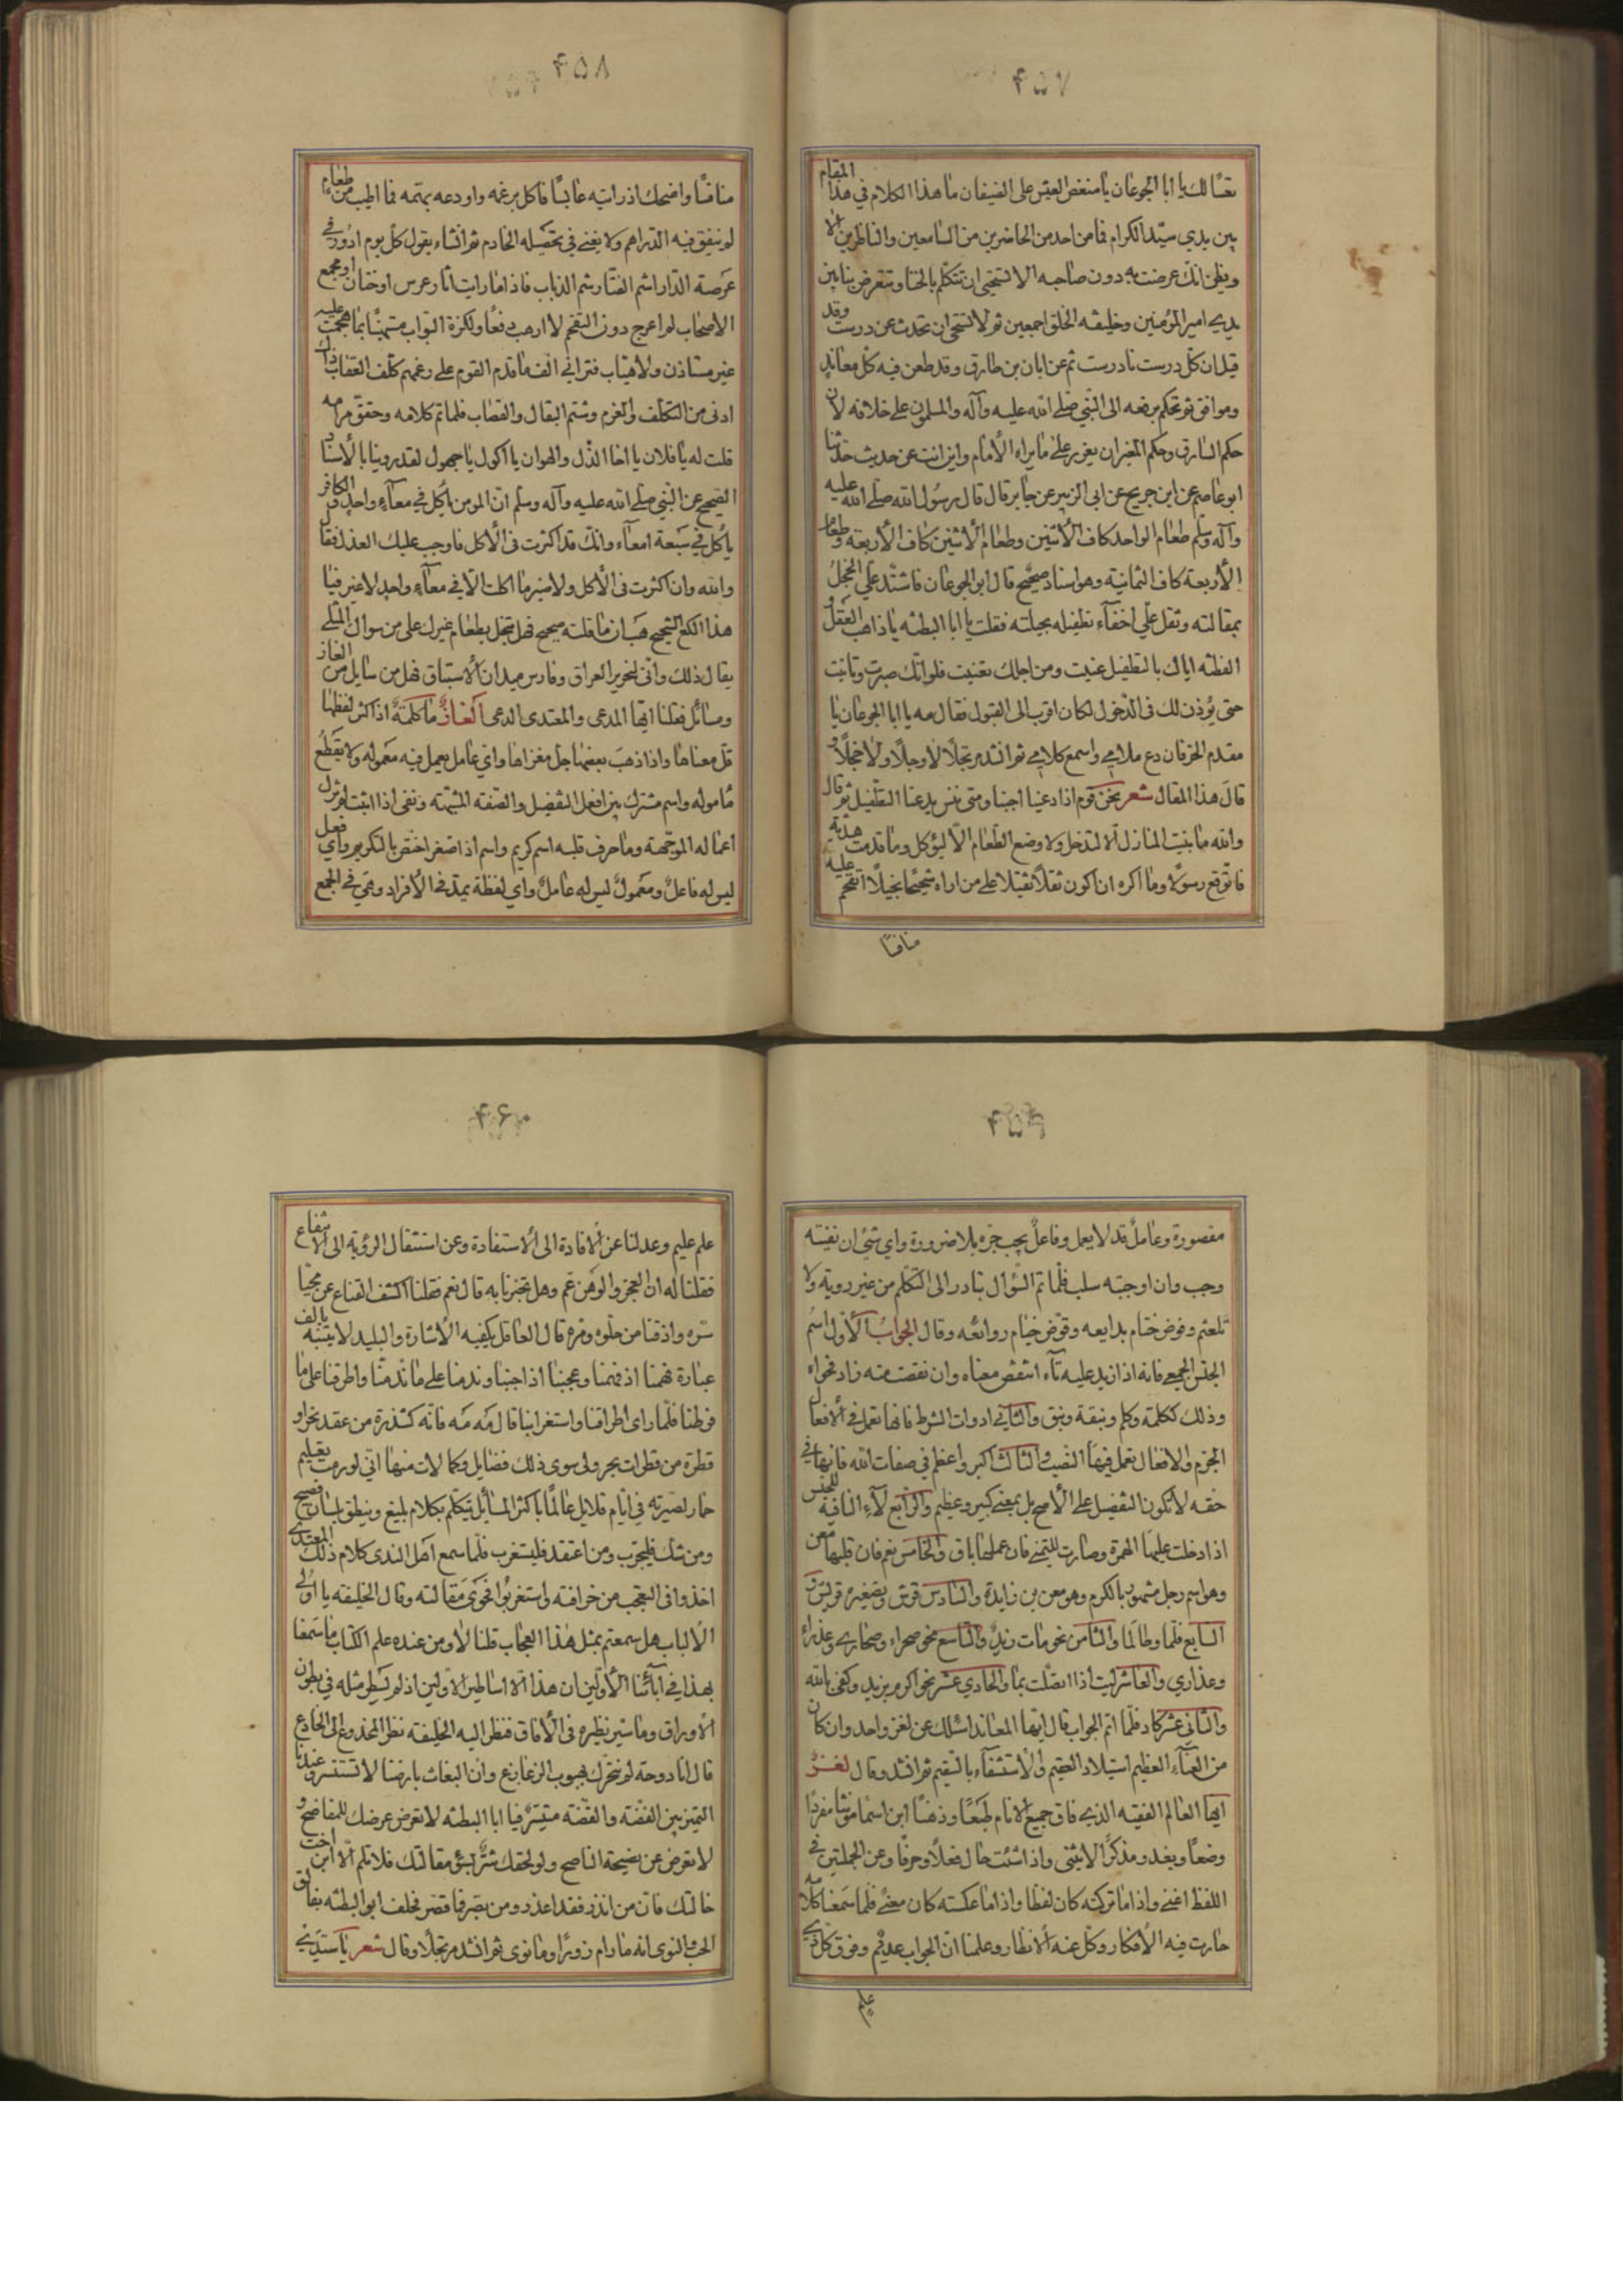 ۴۵۷
تعسًا لك يا ابا الجوعان يا منغص العيش على الضيفان ما هذا الكلام في هذا المقام
بين يدي سيّد الكرام فما من احد من الحاضرين من السامعين والناظرين الا
ويظن انك عرضت به دون صاحبه الا تستحيى ان تتكلم بالخنا وتتعرض بنا بين
يدي امير المؤمنين وخليفه الخلق اجمعين ثم لا تستحى ان تحدث عن درست وقد
قيل ان كل درست نادرست ثم عن ابان بن طارق وقد طعن فيه كل معاند
وموافق ثم تحكم برفعه الى النبي صلى الله عليه وآله والمسلمون على خلافه لان
حكم السارق وحكم المغير ان يعزر على ما يراه الامام واين انت عن حديث حدثنا
ابو عاصم عن ابن جريح عن ابى الزبير عن جابر قال قال رسول الله صلى الله عليه
وآله وسلم طعام الواحد كاف الاثنين وطعام الاثنين كاف الأربعة وطعام
الأربعة كاف الثمانية وهو اسناد صحيح قال ابو الجوعان فاشتد علي الخجل
بمقالته وثقل علي اخفاء تطفيله بحيلته فقلت يا ابا البطنه يا ذاهب العقل و
الفطنه اياك بالتطفيل عنيت ومن اجلك تعنيت فلو انك صبرت وتانيت
حتى يؤذن لك فى الدخول لكان اقرب الى القبول فقال مه يا ابا الجوعان يا
مقدم الخرفان دع ملامي واسمع كلامي ثم انشد مرتجلًا لا وجلًا ولا خجلًا و
قال هذا المقال شعر نحن قوم اذا دعينا اجبنا ومتى ننس يدعنا التطفيل ثم قال
والله ما بنيت المنازل الا لتدخل ولا وضع الطعام الا ليؤكل وما قدمت هديّة
فاتوقع رسولا وما اكره ان اكون ثقلًا ثقيلا على من اراه شحيحًا بخيلًا اتقحم عليه
منافسًا
۴۵۸
منافسًا واضحك اذ رايته عابسًا فاكل برغمه واودعه بهمّه فما اطيب من طعام
لم ينفق فيه الدراهم ولا يعنى في تحصيله الخادم ثم انشاء يقول كل يوم ادور في
عرصة الدار اشم القتار شم الذباب فاذا ما رايت اثار عرس او ختان او مجمع
الاصحاب لم اعرج دون التقحم لا ارهب دفعًا ولكزة البواب مستهينًا بما هجمت عليه
غير مستاذن ولا هياب فتراني الف ما قدم القوم على رغمهم كلف العقاب ذاك
ادنى من التكلف والغرم وشتم البقال والقصاب فلما تم كلامه وحقق مرامه
قلت له يا فلان يا اخا الذل والهوان يا اكول يا مجهول لقد روينا بالأسناد
الصحيح عن النبي صلى الله عليه وآله وسلم ان المومن ياكل في معاء واحد والكافر
ياكل في سبعة امعاء وانك قد اكثرت فى الأكل فاوجب عليك العذل فقال
والله وان اكثرت فى الأكل ولا ضير ما اكلت الا في معاء واحد لا غير فيا
هذا الكع الشحيح هب ان ما قلته صحيح فهل تبخل بطعام غيرك على من سوال المثلى
يقال ذلك وانى نحرير العراق وفارس ميدان الأستباق فهل من سايل من الغاز
ومسائل فقلنا ايها المدعى والمعتدى الدعى الغاز ما كلمة اذا كثر لفظها
قل معناها واذا ذهب بعضها جل مغزاها واي عامل يعمل فيه معموله ولا يقطع
مأموله واسم مشترك بين افعل التفضيل والصفة المشبهة ونفى اذا اثبت لم تزل
اعماله الموجهة وما حرف قلبه اسم كريم واسم اذ اصغر اختص بالتكريم واي فعل
ليس له فاعل ومعمول ليس له عامل واي لفظة يمد في الأفراد وهي في الجمع
۴۵۹
مقصورة وعامل قد لا يعمل وفاعل يجب جره بلا ضرورة واي شئ ان نفيته
وجب وان اوجبته سلب فلما تم السؤال تبادر الى التكلم من غير روية ولا
تلعثم وفوض ختام بدايعه وقوض خيام روائعه وقال الجواب الأول اسم
الجنس الجمعى فانه اذا زيد عليه تاء انتقص معناه وان نقصت منه زاد فحواه
وذلك ككلمة وكلم ونبقة ونبق والثاني ادوات الشرط فانها تعمل في الافعال
الجزم والافعال تعمل فيها النصب والثالث اكبر واعظم في صفات الله فانها في
حقه لا تكون التفضيل على الأصح بل بمعنى كبير وعظيم والرابع لآء النافية للجنس
اذا دخلت عليها الهمزة وصارت للتمنى فان عملها باق والخامس نعم فان قلبها معن
وهو اسم رجل مشهور بالكرم وهو معن بن زايدة والسادس قرش وتصغيره قريش و
السابع قلما وطالما والثامن نحو مات زيد والتاسع نحو صحراء وصحارى وعذراء
وعذاري والعاشر ليت اذا اتصلت بما والحادي عشر نحو اكرم بزيد وكفى بالله
والثاني عشر كاد فلما اتم الجواب قال ايها المعاند اسئلك عن لغز واحد وان كان
من العناء العظيم استيلاد العقيم والأستشفاء بالسقيم ثم انشد وقال لغز
ايها العالم الفقيه الذي فاق جميع الانام طبعًا وذهنًا ابن اسما مؤنثا مفردًا
وضعًا ويغدو مذكرًا لا يثنى واذا شئت حال فعلًا وحرفًا وعن الجملتين في
اللفظ اغنى واذا ما تركته كان لفظا واذا ما عكسته كان معنىً فلما سمعنا كلامه
حارت فيه الأفكار وكل عنه الأنظار وعلمنا ان الجواب عديم وفوق كل ذي
علم
۴۶۰
علم عليم وعدلنا عن الافادة الى الأستفادة وعن استثقال الرؤية الى الانتفاع
فقلنا له ان العجز والوهن عم وهل تخبرنا به قال نعم فقلنا اكشف القناع عن محيا
سره واذقنا من حلوه ومره قال العاقل يكفيه الأشارة والبليد لا يتنبه بالف
عبارة فهمنا اذ فهمنا وعجبنا اذا اجبنا وندمنا على ما ندمنا واطرقنا على ما
فرطنا فلما راى اطراقنا واستغرابنا قال مه مه فانه كشذرة من عقد نحر او
قطرة من قطرات بحر ولى سوى ذلك فضايل وكمالات منها اني لو رمت تعليم
حمار لصيرته في ايام قلايل عالمًا باكثر المسائل يتكلم بكلام بليغ وينطق بلسان فصيح
ومن شك فليجرب ومن اعتقد فليستغرب فلما سمع اهل الندى كلام ذلك المعتدي
اخذوا فى العجب من خرافته واستغربوا فحوى مقالته وقال الخليفه يا اولى
الألباب هل سمعتم بمثل هذا العجاب قلنا لا ومن عنده علم الكتاب ما سمعنا
بهذا في آبائنا الأولين ان هذا الا اساطير الاولين اذ لم يسطر مثله في بطون
الأوراق وما سير نظيره فى الأفاق فنظر اليه الخليفه نظر المخدوع الى الخادع
قال انا دوحة لم تتحرك بهبوب الزعازع وان البغاث بارضنا لا تستنسر وعندنا
التميز بين الفضه والقضه متيسر فيا ابا البطنه لا تعرض عرضك للمفاضح و
لا تعرض عن نصيحة الناصح ولو لحقك شر لسؤ مقالتك فلا تلم الا ابن اخت
خالتك فان من انذر فقد اعذر ومن بصر فما قصر فحلف ابو البطنه بفالق
الحب والنوى انه ما رام زورًا وما نوى ثم انشد مرتجلًا وقال شعر يا سيدي